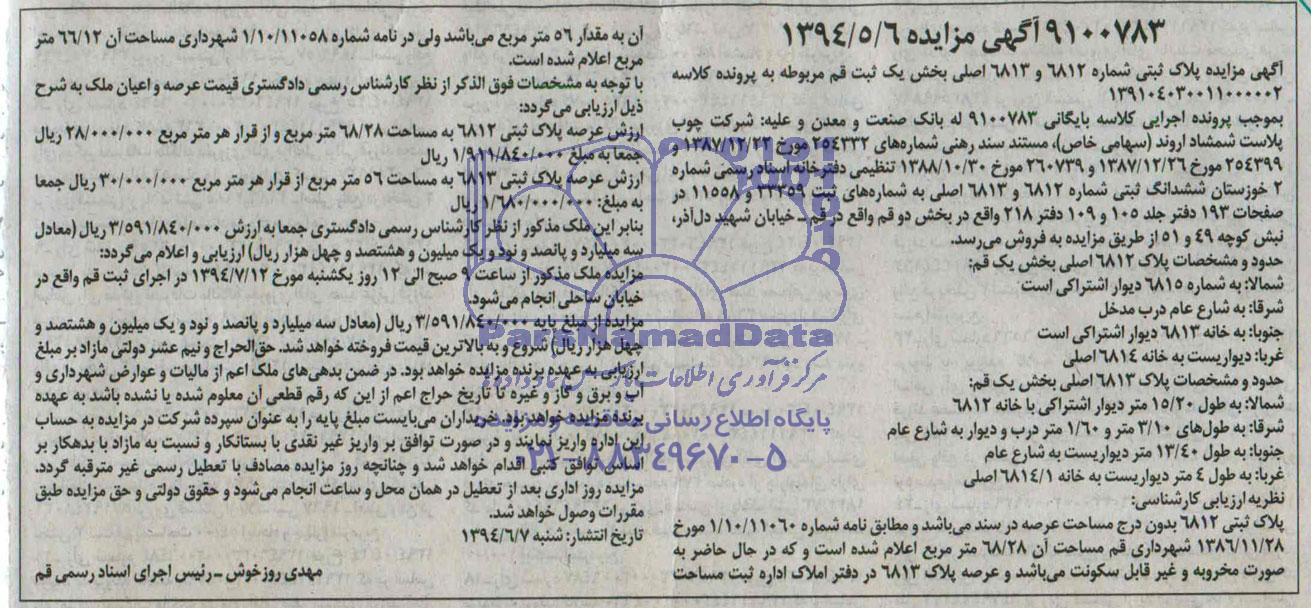 ۹۱۰۰۷۸۳ آگهی مزایده ۱۳۹۴/۵/۶
آگهی مزایده پلاک ثبتی شماره ۶۸۱۲ و ۶۸۱۳ اصلی بخش یک ثبت قم مربوطه به پرونده کلاسه
۱۳۹۱۰۴۰۳۰۰۱۱۰۰۰۰۰۲
بموجب پرونده اجرایی کلاسه بایگانی ۹۱۰۰۷۸۳ له بانک صنعت و معدن و علیه: شرکت چوب
پلاست شمشاد اروند (سهامی خاص)، مستند سند رهنی شماره‌های ۲۵۴۳۳۲ مورخ ۱۳۸۷/۱۲/۲۲ و
۲۵۴۳۹۹ مورخ ۱۳۸۷/۱۲/۲۶ و ۲۶۰۷۳۹ مورخ ۱۳۸۸/۱۰/۳۰ تنظیمی دفترخانه اسناد رسمی شماره
۲ خوزستان ششدانگ ثبتی شماره ۶۸۱۲ و ۶۸۱۳ اصلی به شماره‌های ثبت ۲۳۲۵۹ و ۱۱۵۵۸ در
صفحات ۱۹۳ دفتر جلد ۱۰۵ و ۱۰۹ دفتر ۲۱۸ واقع در بخش دو قم واقع در قم ـ خیابان شهید دل‌آذر،
نبش کوچه ۴۹ و ۵۱ از طریق مزایده به فروش می‌رسد.
حدود و مشخصات پلاک ۶۸۱۲ اصلی بخش یک قم:
شمالا: به شماره ۶۸۱۵ دیوار اشتراکی است
شرقا: به شارع عام درب مدخل
جنوبا: به خانه ۶۸۱۳ دیوار اشتراکی است
غربا: دیواریست به خانه ۶۸۱۴ اصلی
حدود و مشخصات پلاک ۶۸۱۳ اصلی بخش یک قم:
شمالا: به طول ۱۵/۲۰ متر دیوار اشتراکی با خانه ۶۸۱۲
شرقا: به طول‌های ۳/۱۰ متر و ۱/۶۰ متر درب و دیوار به شارع عام
جنوبا: به طول ۱۳/۴۰ متر دیواریست به شارع عام
غربا: به طول ۴ متر دیواریست به خانه ۶۸۱۴/۱ اصلی
نظریه ارزیابی کارشناسی:
پلاک ثبتی ۶۸۱۲ بدون درج مساحت عرصه در سند می‌باشد و مطابق نامه شماره ۱/۱۰/۱۱۰۶۰ مورخ
۱۳۸۶/۱۱/۲۸ شهرداری قم مساحت آن ۶۸/۲۸ متر مربع اعلام شده است و که در حال حاضر به
صورت مخروبه و غیر قابل سکونت می‌باشد و عرصه پلاک ۶۸۱۳ در دفتر املاک اداره ثبت مساحت
آن به مقدار ۵۶ متر مربع می‌باشد ولی در نامه شماره ۱/۱۰/۱۱۰۵۸ شهرداری مساحت آن ۶۶/۱۲ متر
مربع اعلام شده است.
با توجه به مشخصات فوق الذکر از نظر کارشناس رسمی دادگستری قیمت عرصه و اعیان ملک به شرح
ذیل ارزیابی می‌گردد:
ارزش عرصه پلاک ثبتی ۶۸۱۲ به مساحت ۶۸/۲۸ متر مربع و از قرار هر متر مربع ۲۸/۰۰۰/۰۰۰ ریال
جمعا به مبلغ ۱/۹۱۱/۸۴۰/۰۰۰ ریال
ارزش عرصه پلاک ثبتی ۶۸۱۳ به مساحت ۵۶ متر مربع از قرار هر متر مربع ۳۰/۰۰۰/۰۰۰ ریال جمعا
به مبلغ: ۱/۶۸۰/۰۰۰/۰۰۰ ریال
بنابر این ملک مذکور از نظر کارشناس رسمی دادگستری جمعا به ارزش ۳/۵۹۱/۸۴۰/۰۰۰ ریال (معادل
سه میلیارد و پانصد و نود و یک میلیون و هشتصد و چهل هزار ریال) ارزیابی و اعلام می‌گردد:
مزایده ملک مذکور از ساعت ۹ صبح الی ۱۲ روز یکشنبه مورخ ۱۳۹۴/۷/۱۲ در اجرای ثبت قم واقع در
خیابان ساحلی انجام می‌شود.
مزایده از مبلغ پایه ۳/۵۹۱/۸۴۰/۰۰۰ ریال (معادل سه میلیارد و پانصد و نود و یک میلیون و هشتصد و
چهل هزار ریال) شروع و به بالاترین قیمت فروخته خواهد شد. حق‌الحراج و نیم عشر دولتی مازاد بر مبلغ
ارزیابی به عهده برنده مزایده خواهد بود. در ضمن بدهی‌های ملک اعم از مالیات و عوارض شهرداری و
آب و برق و گاز و غیره تا تاریخ حراج اعم از این که رقم قطعی آن معلوم شده یا نشده باشد به عهده
برنده مزایده خواهد بود. خریداران می‌بایست مبلغ پایه را به عنوان سپرده شرکت در مزایده به حساب
این اداره واریز نمایند و در صورت توافق بر واریز غیر نقدی با بستانکار و نسبت به مازاد با بدهکار بر
اساس توافق کتبی اقدام خواهد شد و چنانچه روز مزایده مصادف با تعطیل رسمی غیر مترقبه گردد.
مزایده روز اداری بعد از تعطیل در همان محل و ساعت انجام می‌شود و حقوق دولتی و حق مزایده طبق
مقررات وصول خواهد شد.
تاریخ انتشار: شنبه ۱۳۹۴/۶/۷
مهدی روزخوش ـ رئیس اجرای اسناد رسمی قم
ParsNamadData
مرکز فرآوری اطلاعات پارس نماد داده‌ها
پایگاه اطلاع رسانی مناقصه و مزایده
۰۲۱-۸۸۳۴۹۶۷۰-۵